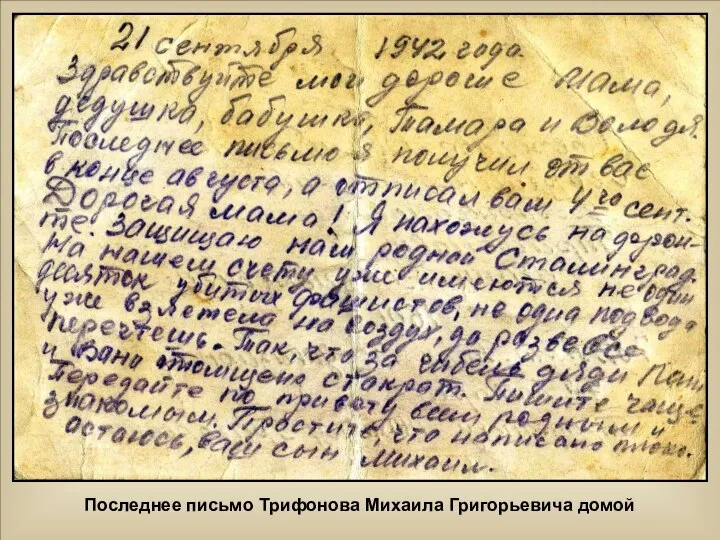 21 сентября 1942 года.
Здравствуйте мои дорогие мама,
дедушка, бабушка, Тамара и Володя.
Последнее письмо я получил от вас
в конце августа, а отписал вам 4го сент.
Дорогая мама! Я нахожусь на
те. Защищаю наш родной Сталинград.
На нашем счету уже имеются не один
десяток убитых фашистов, не одна подвода
уже взлетела на воздух, да разве все
перечтешь. Так, что за гибель дяди Паши
и Вани отомщено стократ. Пишите чаще
Передайте по привету всем родным и
знакомым. Простите, что написано плохо.
остаюсь, ваш сын Михаил.
Последнее письмо Трифонова Михаила Григорьевича домой